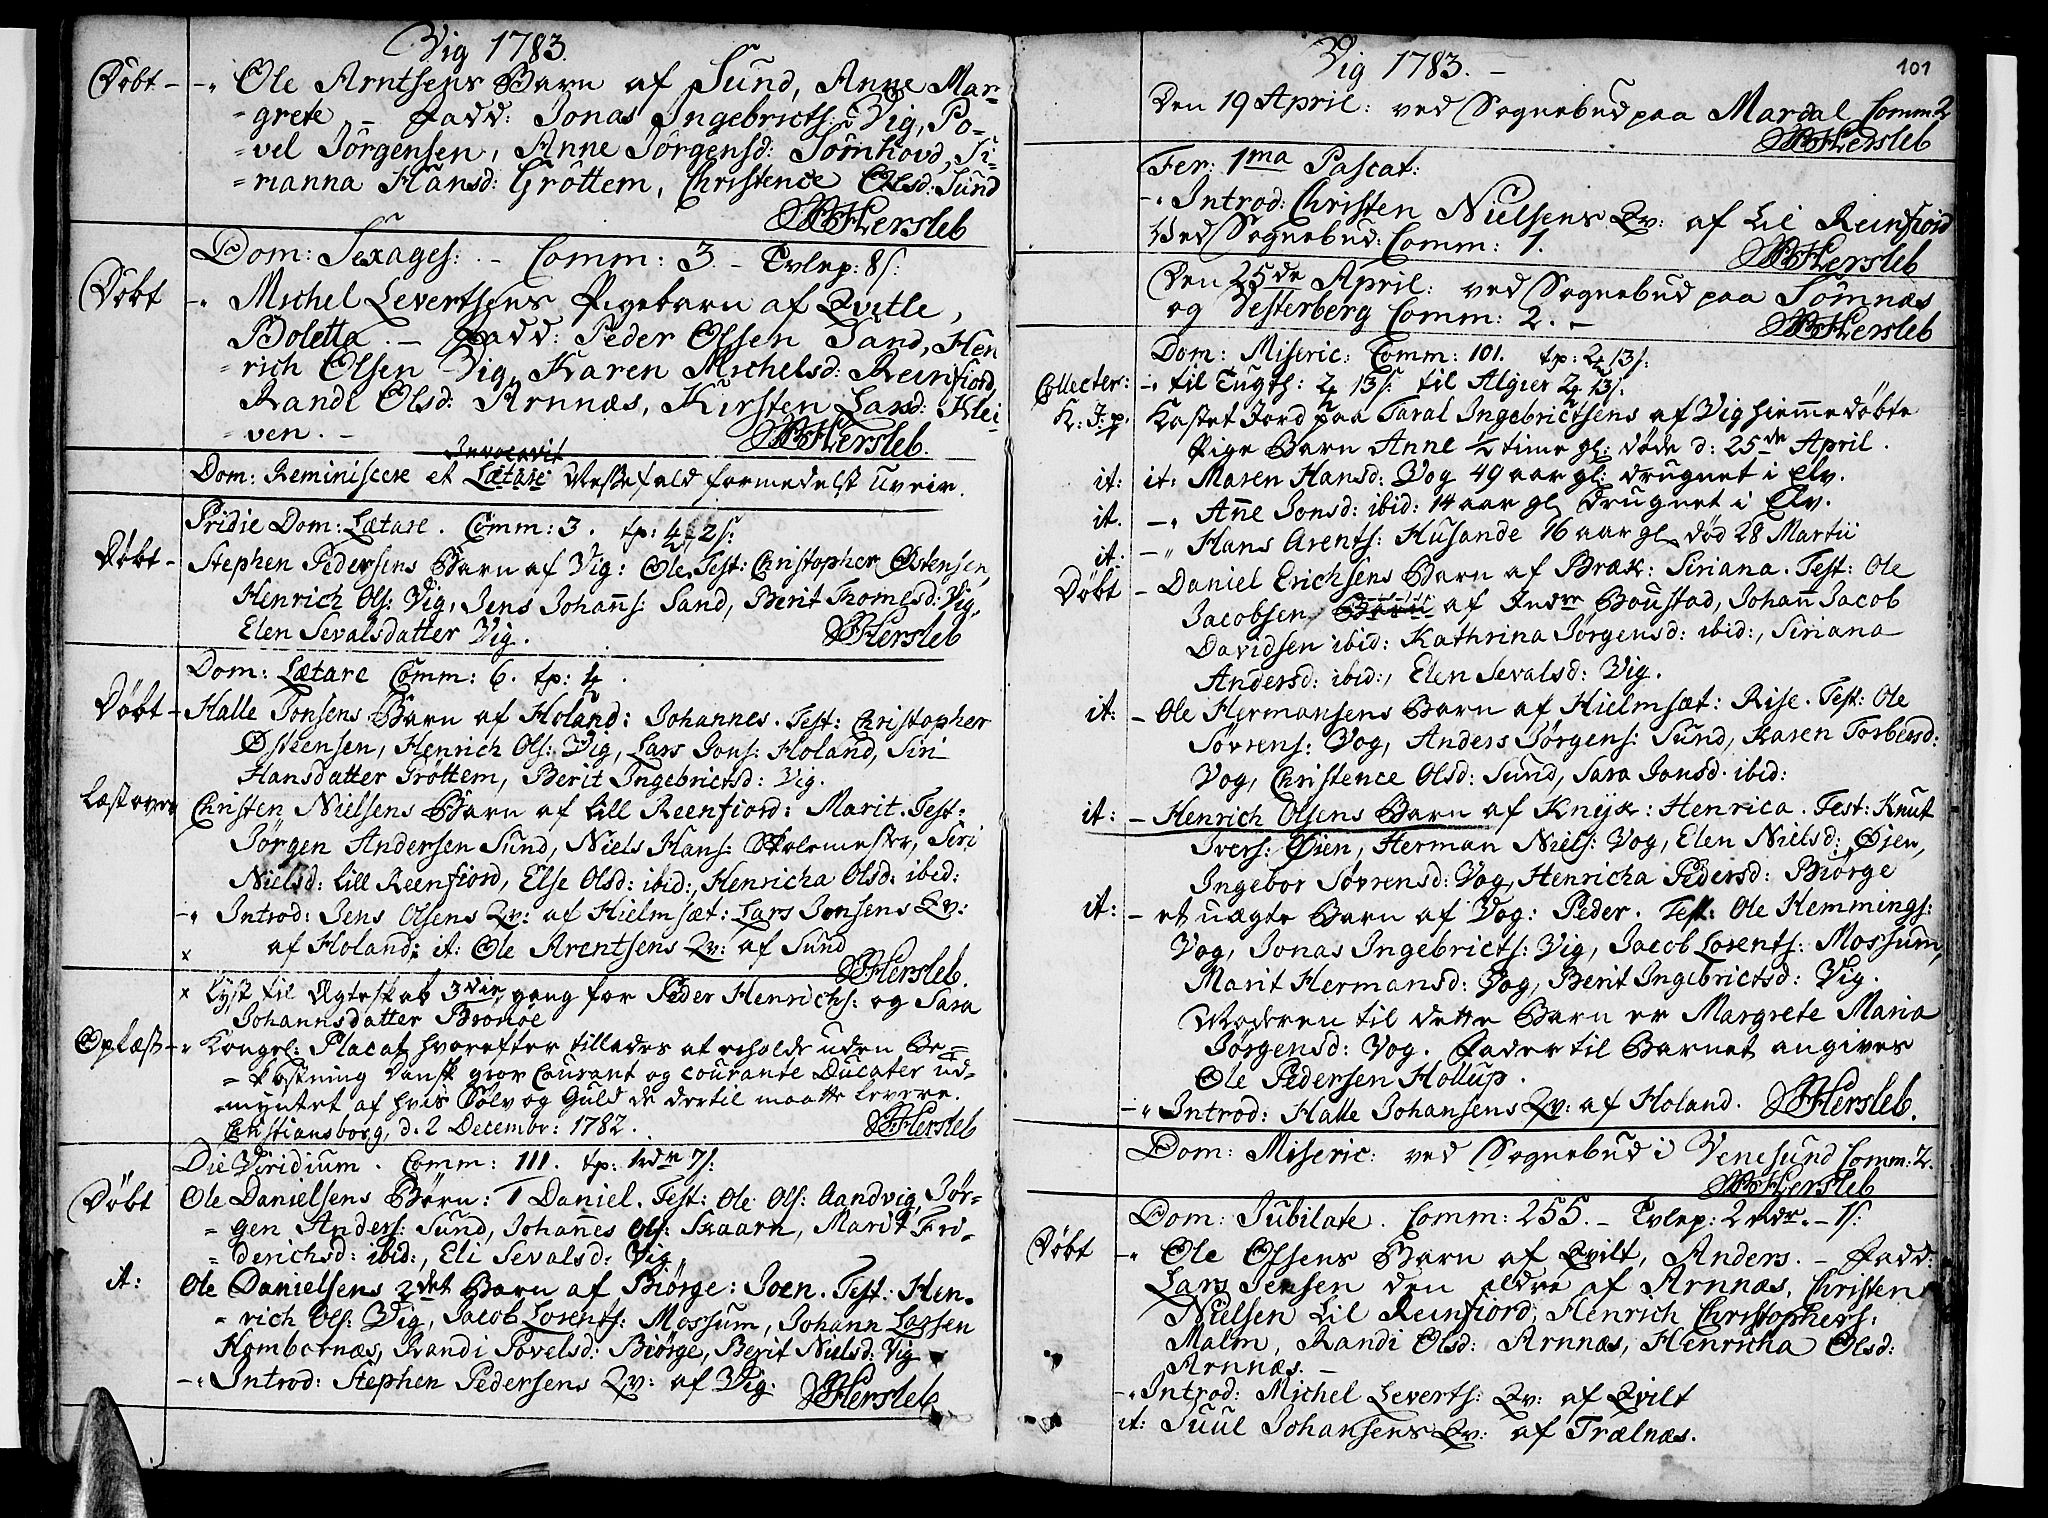 Vig 1783.
Döbt - -„ Ole Arntsens Barn af Sund, Anne Mar-
-grete - Fadd: Jonas Ingebricts: Vig, Po-
-vel Jörgensen, Anne Jörgensd: Sömhovd, Si-
-rianna Hansd: Gröttem, Christence Olsd: Sund
Hersleb
Dom: Sexages: - Comm: 3 - Tvlep: 8 s:
Döbt -„ Michel Levertsens Pigebarn af Qvitle,
Boletta. - Fadd: Peder Olsen Sand, Hen
-rich Olsen Vig, Karen Michelsd: Reinfiord,
Randi Olsd: Arnnæs, Kirsten Larsd: Klei-
-ven. -
Hersleb.
Invocavit
Dom: Reminiscere et Lætare Messefald formedelst Uveir.
Pridie Dom: Lætare. Comm: 3. tp: 4 2 s:
Döbt - Stephen Pedersens Barn af Vig: Ole. Test: Christopher Østensen,
Henrich Ols: Vig, Jens Johanns: Sand, Berit Thomesd: Vig,
Elen Sevalsdatter Vig.
Hersleb
Dom: Lætare Comm: 6. tp: 4
Döbt - Halle Jonsens Barn af Holand: Johannes. Test: Christopher
Østeensen, Henrich Ols: Vig, Lars Jons: Holand, Siri
Hansdatter Gröttem, Berit Ingebrictsd: Vig.
Læst over Christen Nielsens Barn af Lill Reenfiord: Marit. Test:
Jörgen Andersen Sund, Niels Hans: Skolemester, Siri
Nielsd: Lill Reenfiord, Else Olsd: ibid:, Henricha Olsd: ibid:
-„ Introd: Jens Olsens Qv: af Hielmsæt: Lars Jonsens Qv:
x af Holand; it: Ole Arentsens Qv: af Sund
Hersleb.
x Lyst til Ægteskab 3die gang for Peder Henrichs: og Sara
Johannsdatter Brönöe
Oplæst -„ Kongel: Placat hvorefter tillades at erholde uden Be-
-kostning Dansk grov Courant og courante Ducater ud-
-myntet af hvis Sölv og Guld de dertil maatte levere.
Christiansborg, d. 2 Decembr: 1782.
Hersleb
Die Viridium. Comm: 111. tp: 1rdr 7 s:
Döbt Ole Danielsens Börn: 1 Daniel. Test: Ole Ols: Aandvig, Jör-
-gen Anders: Sund, Johannes Ols: Skaarn, Marit Fri-
-derichsd: ibid:, Eli Sevalsd: Vig
it: Ole Danielsens 2det Barn af Biörge: Joen. Test: Hen-
-rich Ols: Vig, Jacob Lorents: Mossum, Johann Larsen
Hombornæs, Randi Povelsd: Biörge, Berit Nielsd: Vig
-„ Introd: Stephen Pedersens Qv: af Vig.
Hersleb
Vig 1783. -
101
Den 19 April: ved Sognebud paa Mardal Comm: 2
Hersleb
Fer: 1ma Pascat:
-„ Introd: Christen Nielsens Qv: af Lil Reinfiord
Ved Sognebud: Comm: 1.
Hersleb
Den 25de April: ved Sognebud paa Sömnæs
og Vesterberg Comm: 2. -
Hersleb
Dom: Miseric: Comm: 101. tp: 2 13 s:
Collecter: -„ til Tugth: 2 13 s: til Algier 2 13 s:
K: J: p. Kastet Jord paa Taral Ingebrictsens af Vig hiemmedöbte
Pige Barn Anne ½ time gl: döde d: 25de April.
it: it: Maren Hansd: Vog 49 aar gl: drugnet i Elv.
it. -„ Anne Jonsd: ibid: 14 aar gl drugnet i Elv.
it: -„ Hans Arents: Husande 16 aar gl död 28 Martii
Döbt - Daniel Erichsens Barn af Bræk: Siriana. Test: Ole
Jacobsen Barn af Indre Boustad, Johann Jacob
Davidsen ibid: Kathrina Jörgensd: ibid:, Siriana
Andersd: ibid:, Elen Sevalsd: Vig.
it: - Ole Hermansens Barn af Hielmsæt: Rise. Test: Ole
Sörrens: Vog, Anders Jörgens: Sund, Karen Torbersd:
Vog, Christence Olsd: Sund, Sara Jonsd. ibid:
it: - Henrich Olsens Barn af Knijk: Henrica. Test: Knut
Ivers: Øien, Herman Niels: Vog, Elen Nielsd: Øien,
Ingebor Sörrensd: Vog, Henricha Pedersd: Biörge
it: - et uægte Barn af Vog: Peder. Test: Ole Hemmings:
Vog, Jonas Ingebricts: Vig, Jacob Lorents: Mossum,
Marit Hermansd: Vog, Berit Ingebrictsd: Vig.
Moderen til dette Barn er Margrete Maria
Jörgensd: Vog. Fader til Barnet angives
Ole Pedersen Hollup.
-„ Introd: Halle Johansens Qv: af Holand.
Hersleb.
Dom: Miseric: ved Sognebud i Venesund Comm: 2.
Hersleb
Dom: Jubilate. Comm: 255. - Tvlep: 2 rdr. - 1 s:
Döbt -„ Ole Olsens Barn af Qvilt, Anders. - Fadd:
Lars Jensen den eldre af Arnnæs, Christen
Nielsen Lil Reinfiord, Henrich Christophers:
Malm, Randi Olsd: Arnnæs, Henricha Olsd:
Arnnæs. -
-„ Introd: Michel Leverts: Qv: af Qvilt
it: Juul Johansens Qv: af Trælnæs.